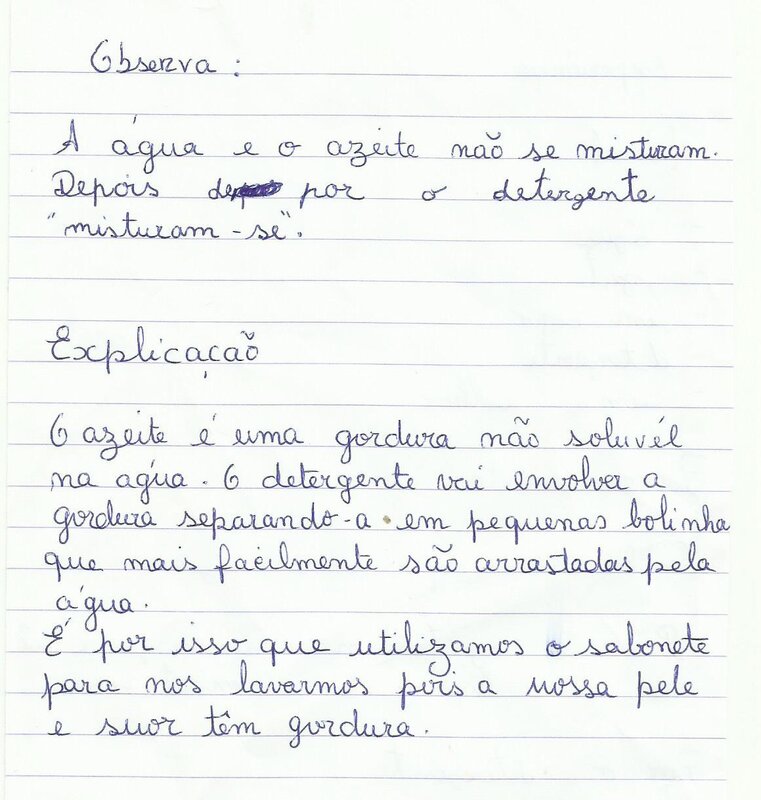 Observa :
A água e o azeite não se misturam.
Depois por o detergente
"misturam-se".
Explicação
O azeite é uma gordura não soluvél
na água. O detergente vai envolver a
gordura separando-a em pequenas bolinha
que mais facilmente são arrastadas pela
água.
É por isso que utilizamos o sabonete
para nos lavarmos pois a nossa pele
e suor têm gordura.